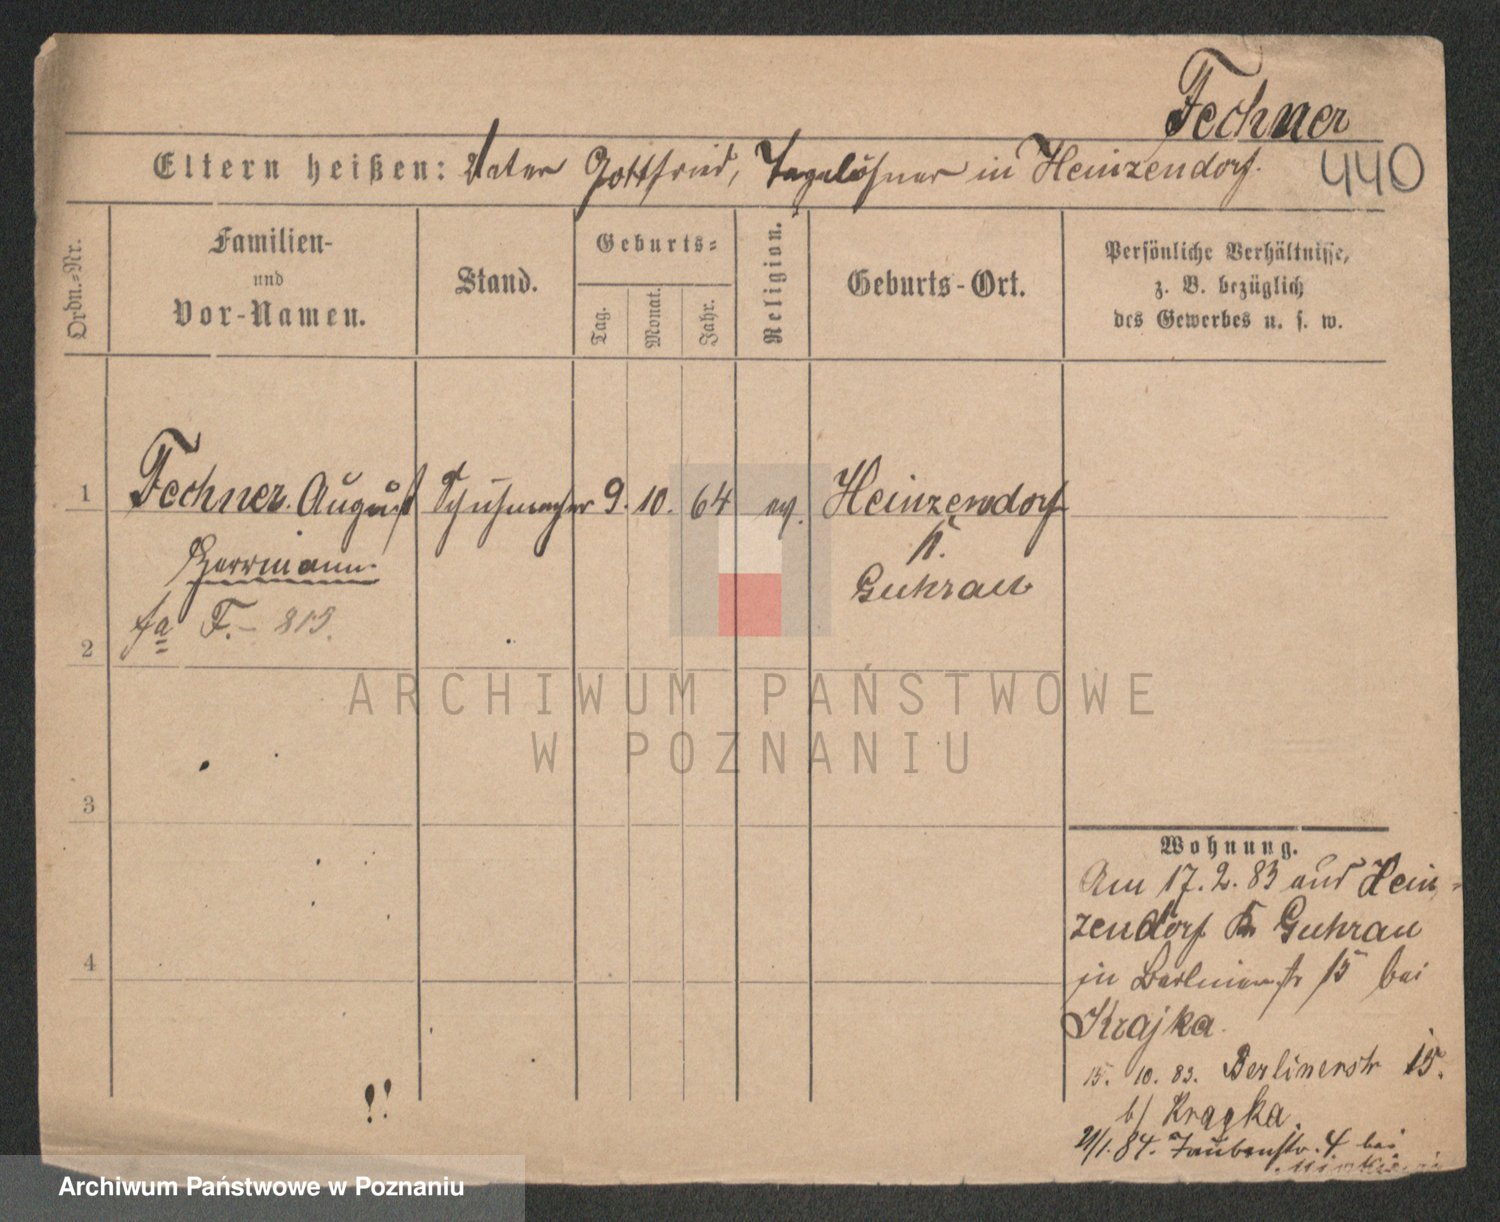 Fechner
Eltern heißen: Vater Gottfried, Tagelöhner in Heinzendorf.
440
Ordn.-Nr.
Familien-
und
Vor-Namen.
Stand.
Geburts-
Tag.
Monat.
Jahr.
Religion.
Geburts-Ort.
Persönliche Verhältnisse,
z. B. bezüglich
des Gewerbes u. s. w.
1 Fechner. August Schuhmacher 9. 10. 64 ev. Heinzendorf
Herrmann.
K.
Guhrau
F.- 815.
2
ARCHIWUM PAŃSTWOWE
W POZNANIU
3
4
Wohnung.
Am 17. 2. 83 aus Hein-
zendorf K Guhrau
in Berlinerstr 15 bei
Krajka.
15. 10. 83. Berlinerstr 15.
b/ Kragka.
21/1. 84. Taubenstr. 4 bei
Archiwum Państwowe w Poznaniu